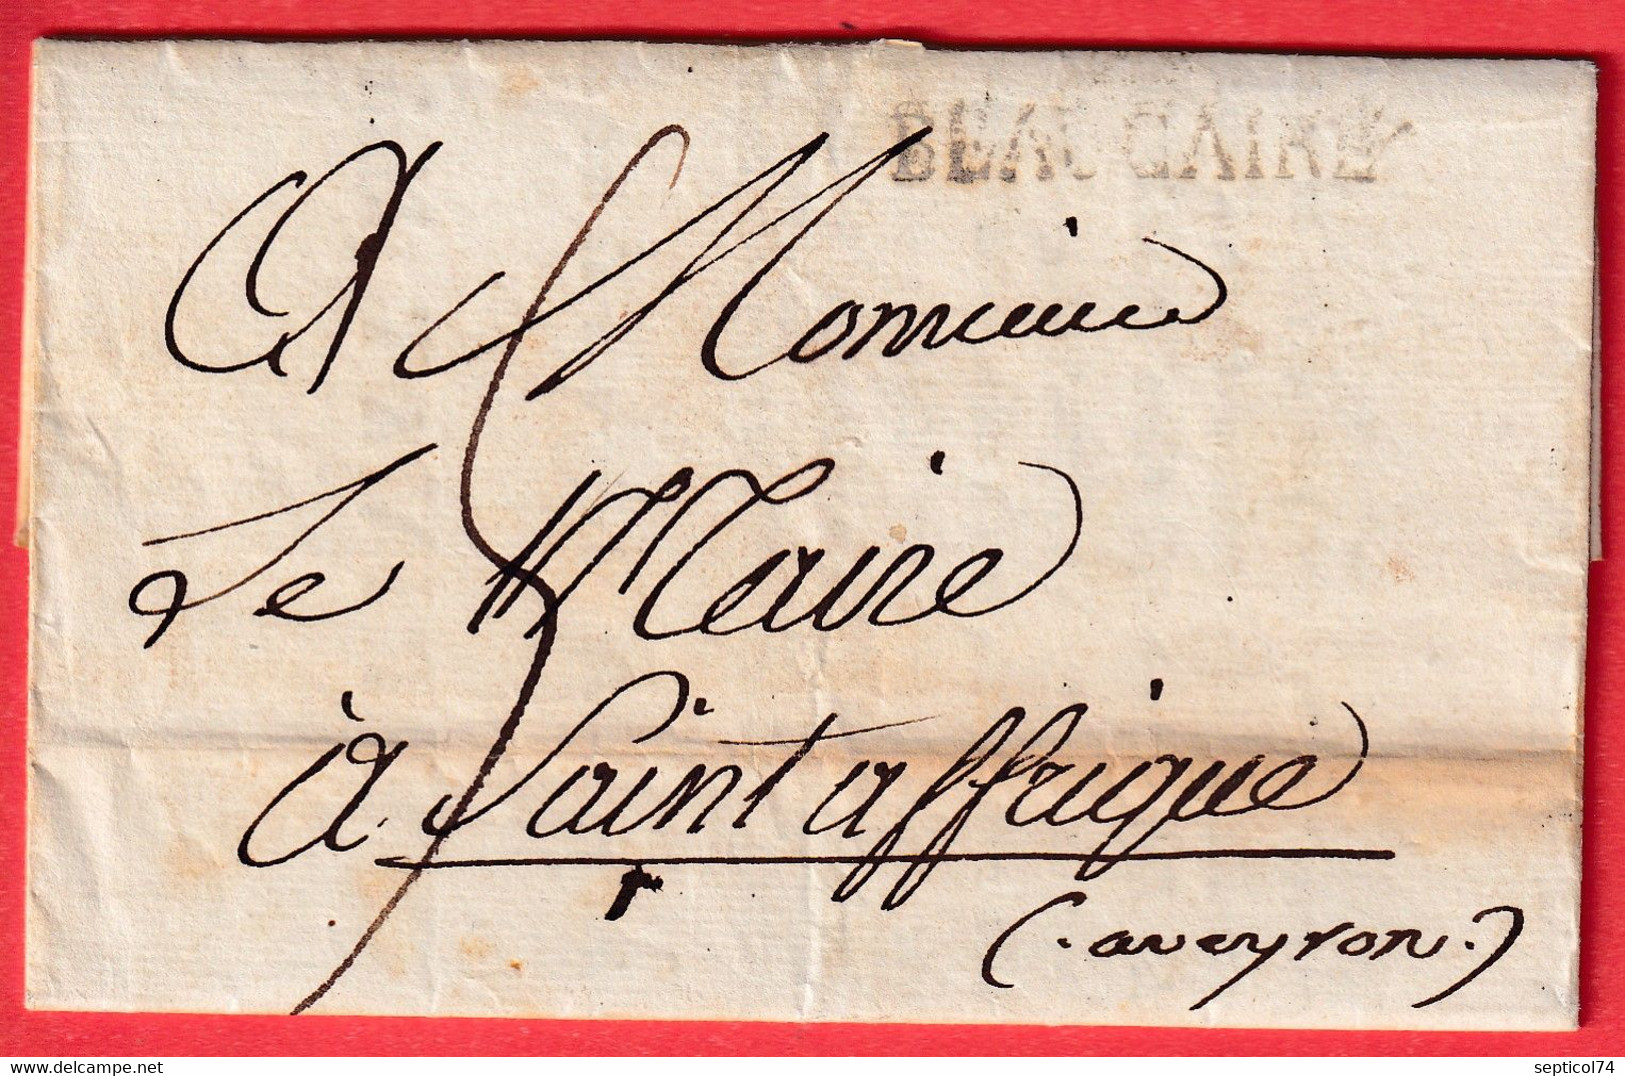 BEAUCAIRE
A Monsieur
Le Maire
à Saint affrique
(. aveyron .)
delcampe.net
septicol74